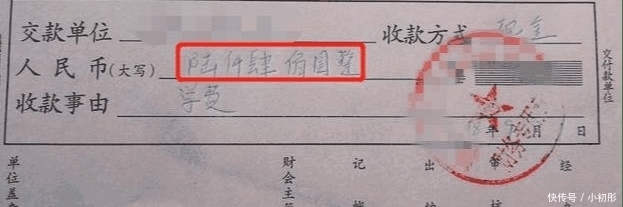 交款单位 收款方式 现金
人民币(大写) 陆仟肆佰圆整
收款事由 学费
年 9月 日
交付款单位
单位盖
财会主管
记
出
经
快传号 / 小初彤